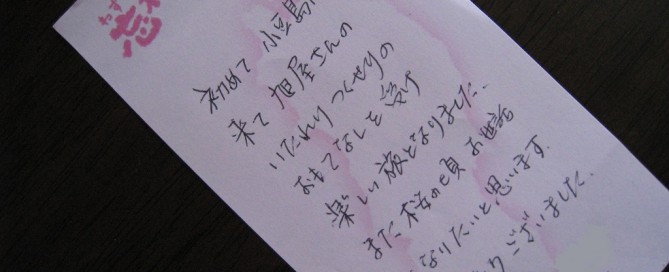 初めて 小豆島
来て 旭屋さんの
いたれり つくせりの
おもてなしを 受け
楽しい旅となりました.
また 桜の頃 お世話
なりたいと思います.
ございました.